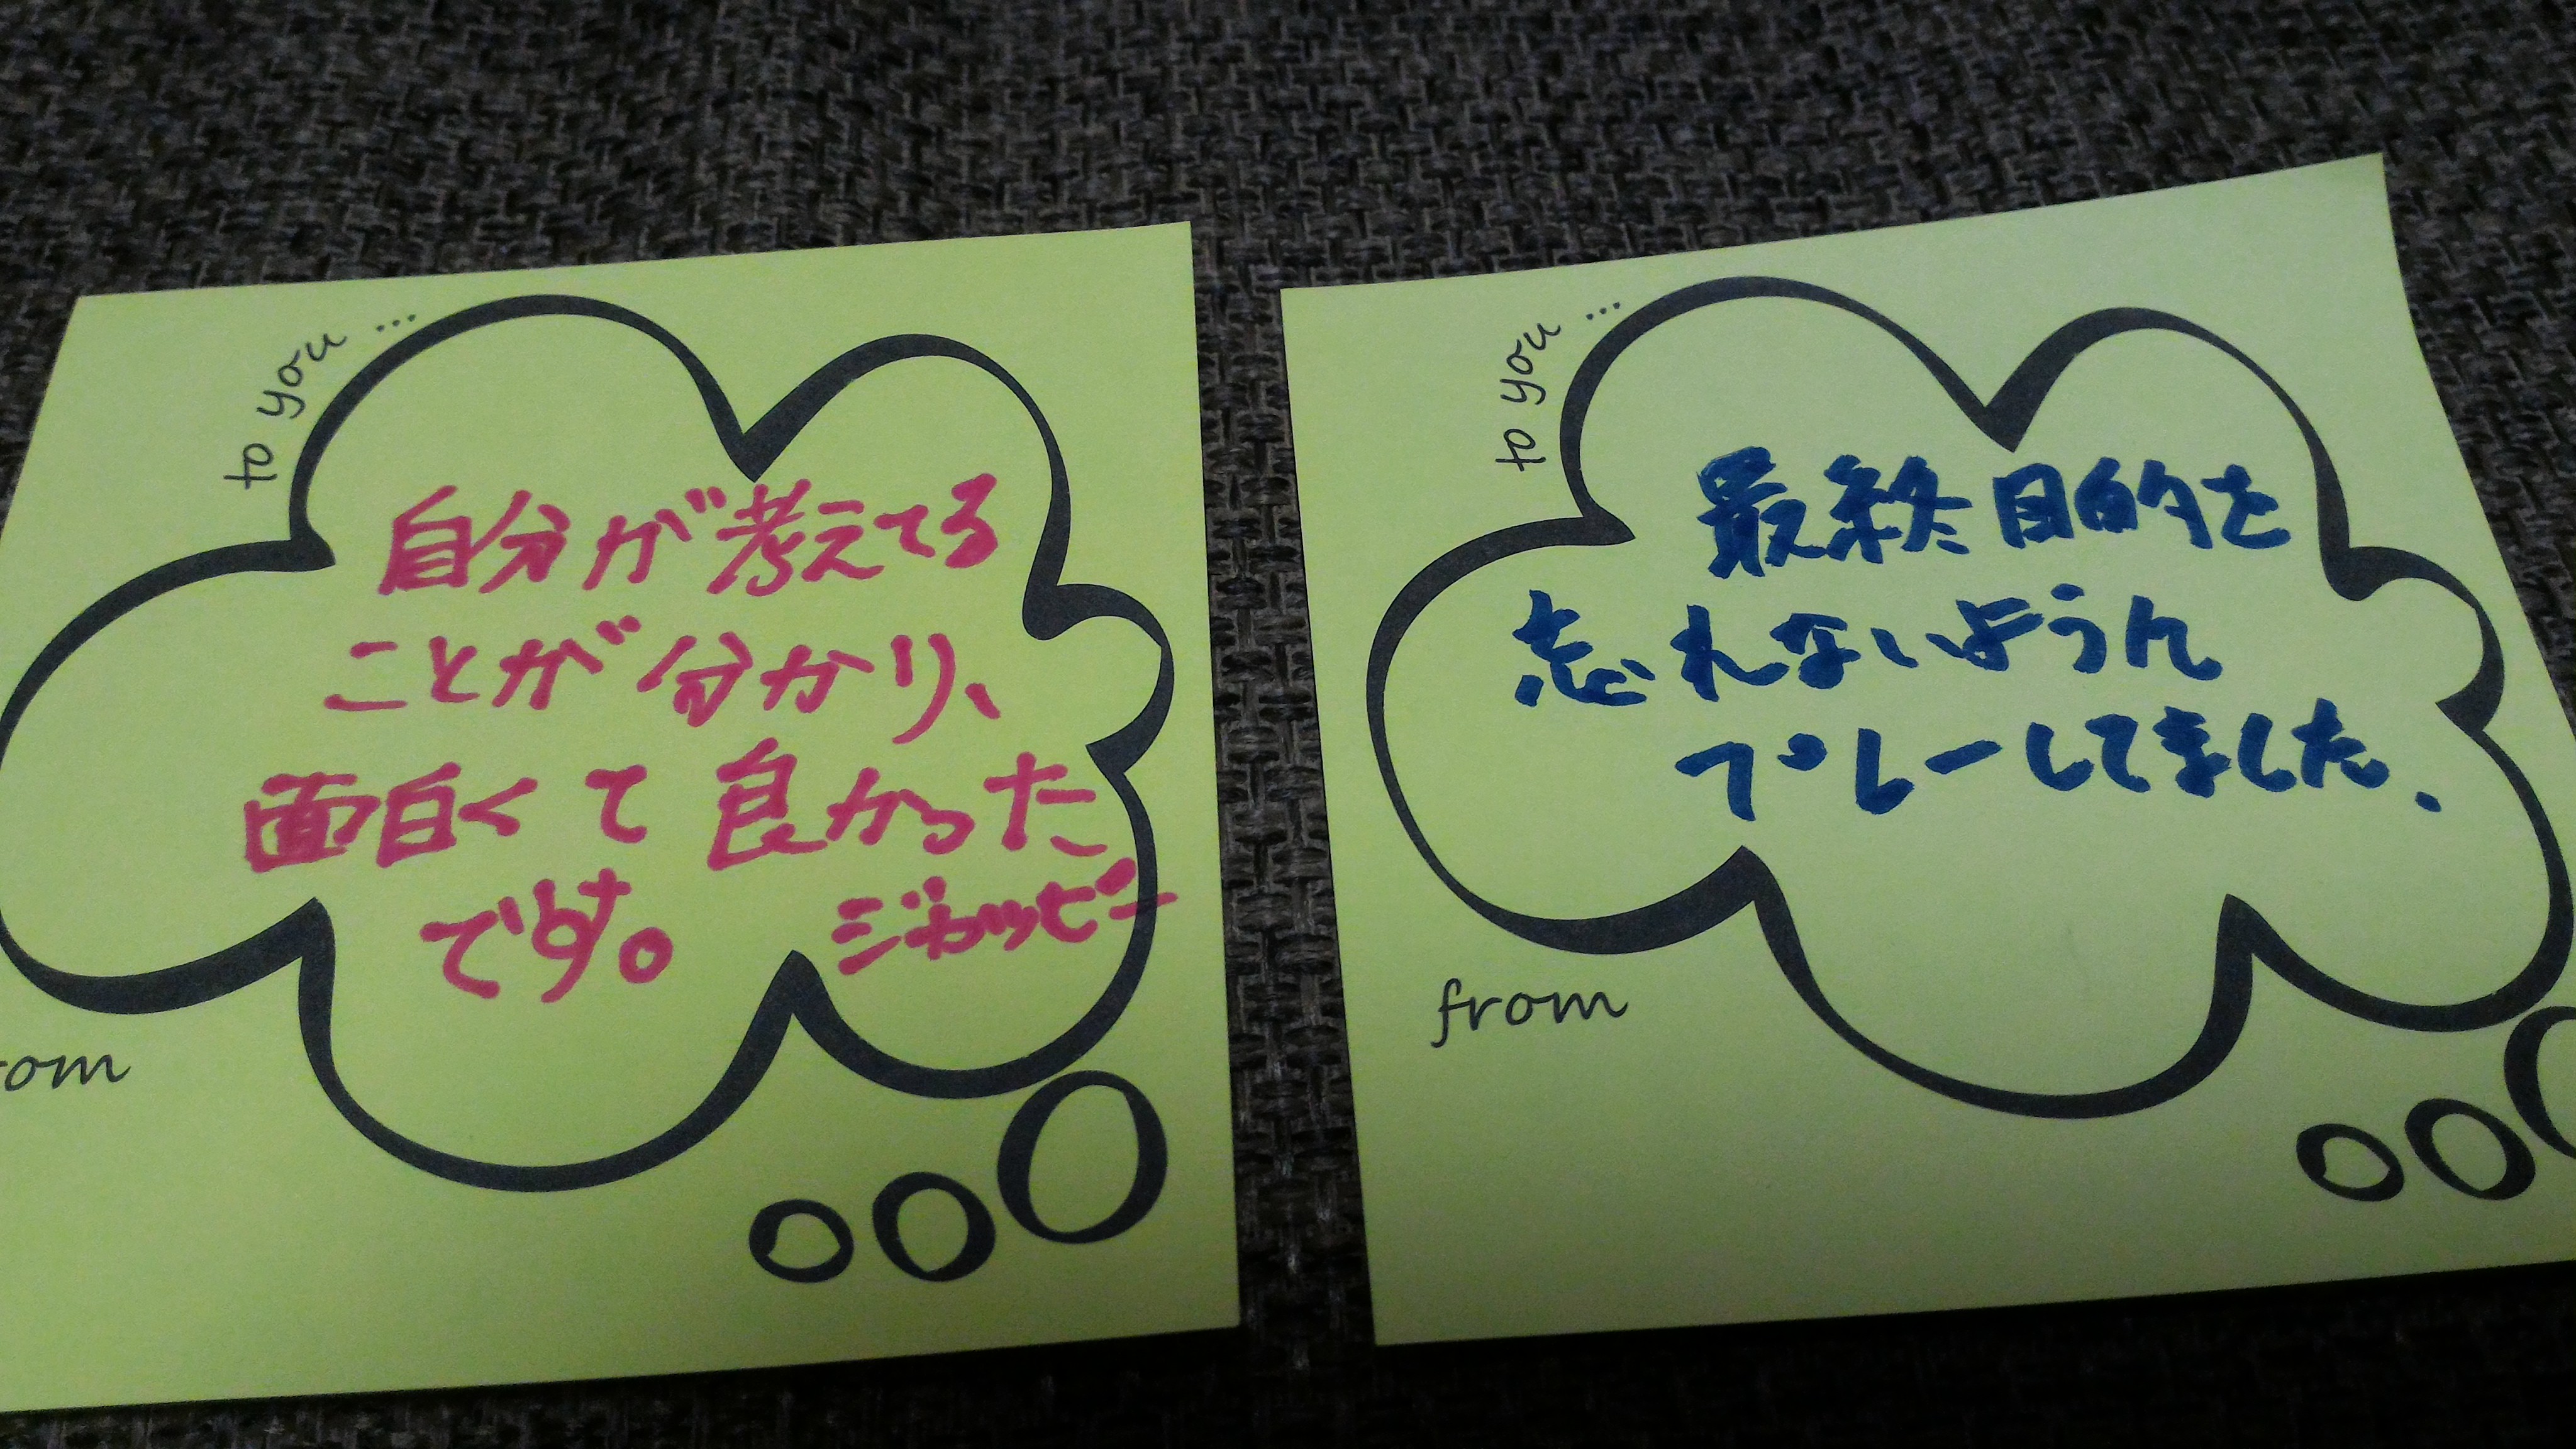 to you ...
自分が考えてる
ことが分かり、
面白くて良かった
です。 ジャッピー
rom
to you ...
最終目的を
忘れないように
プレーしてました.
from